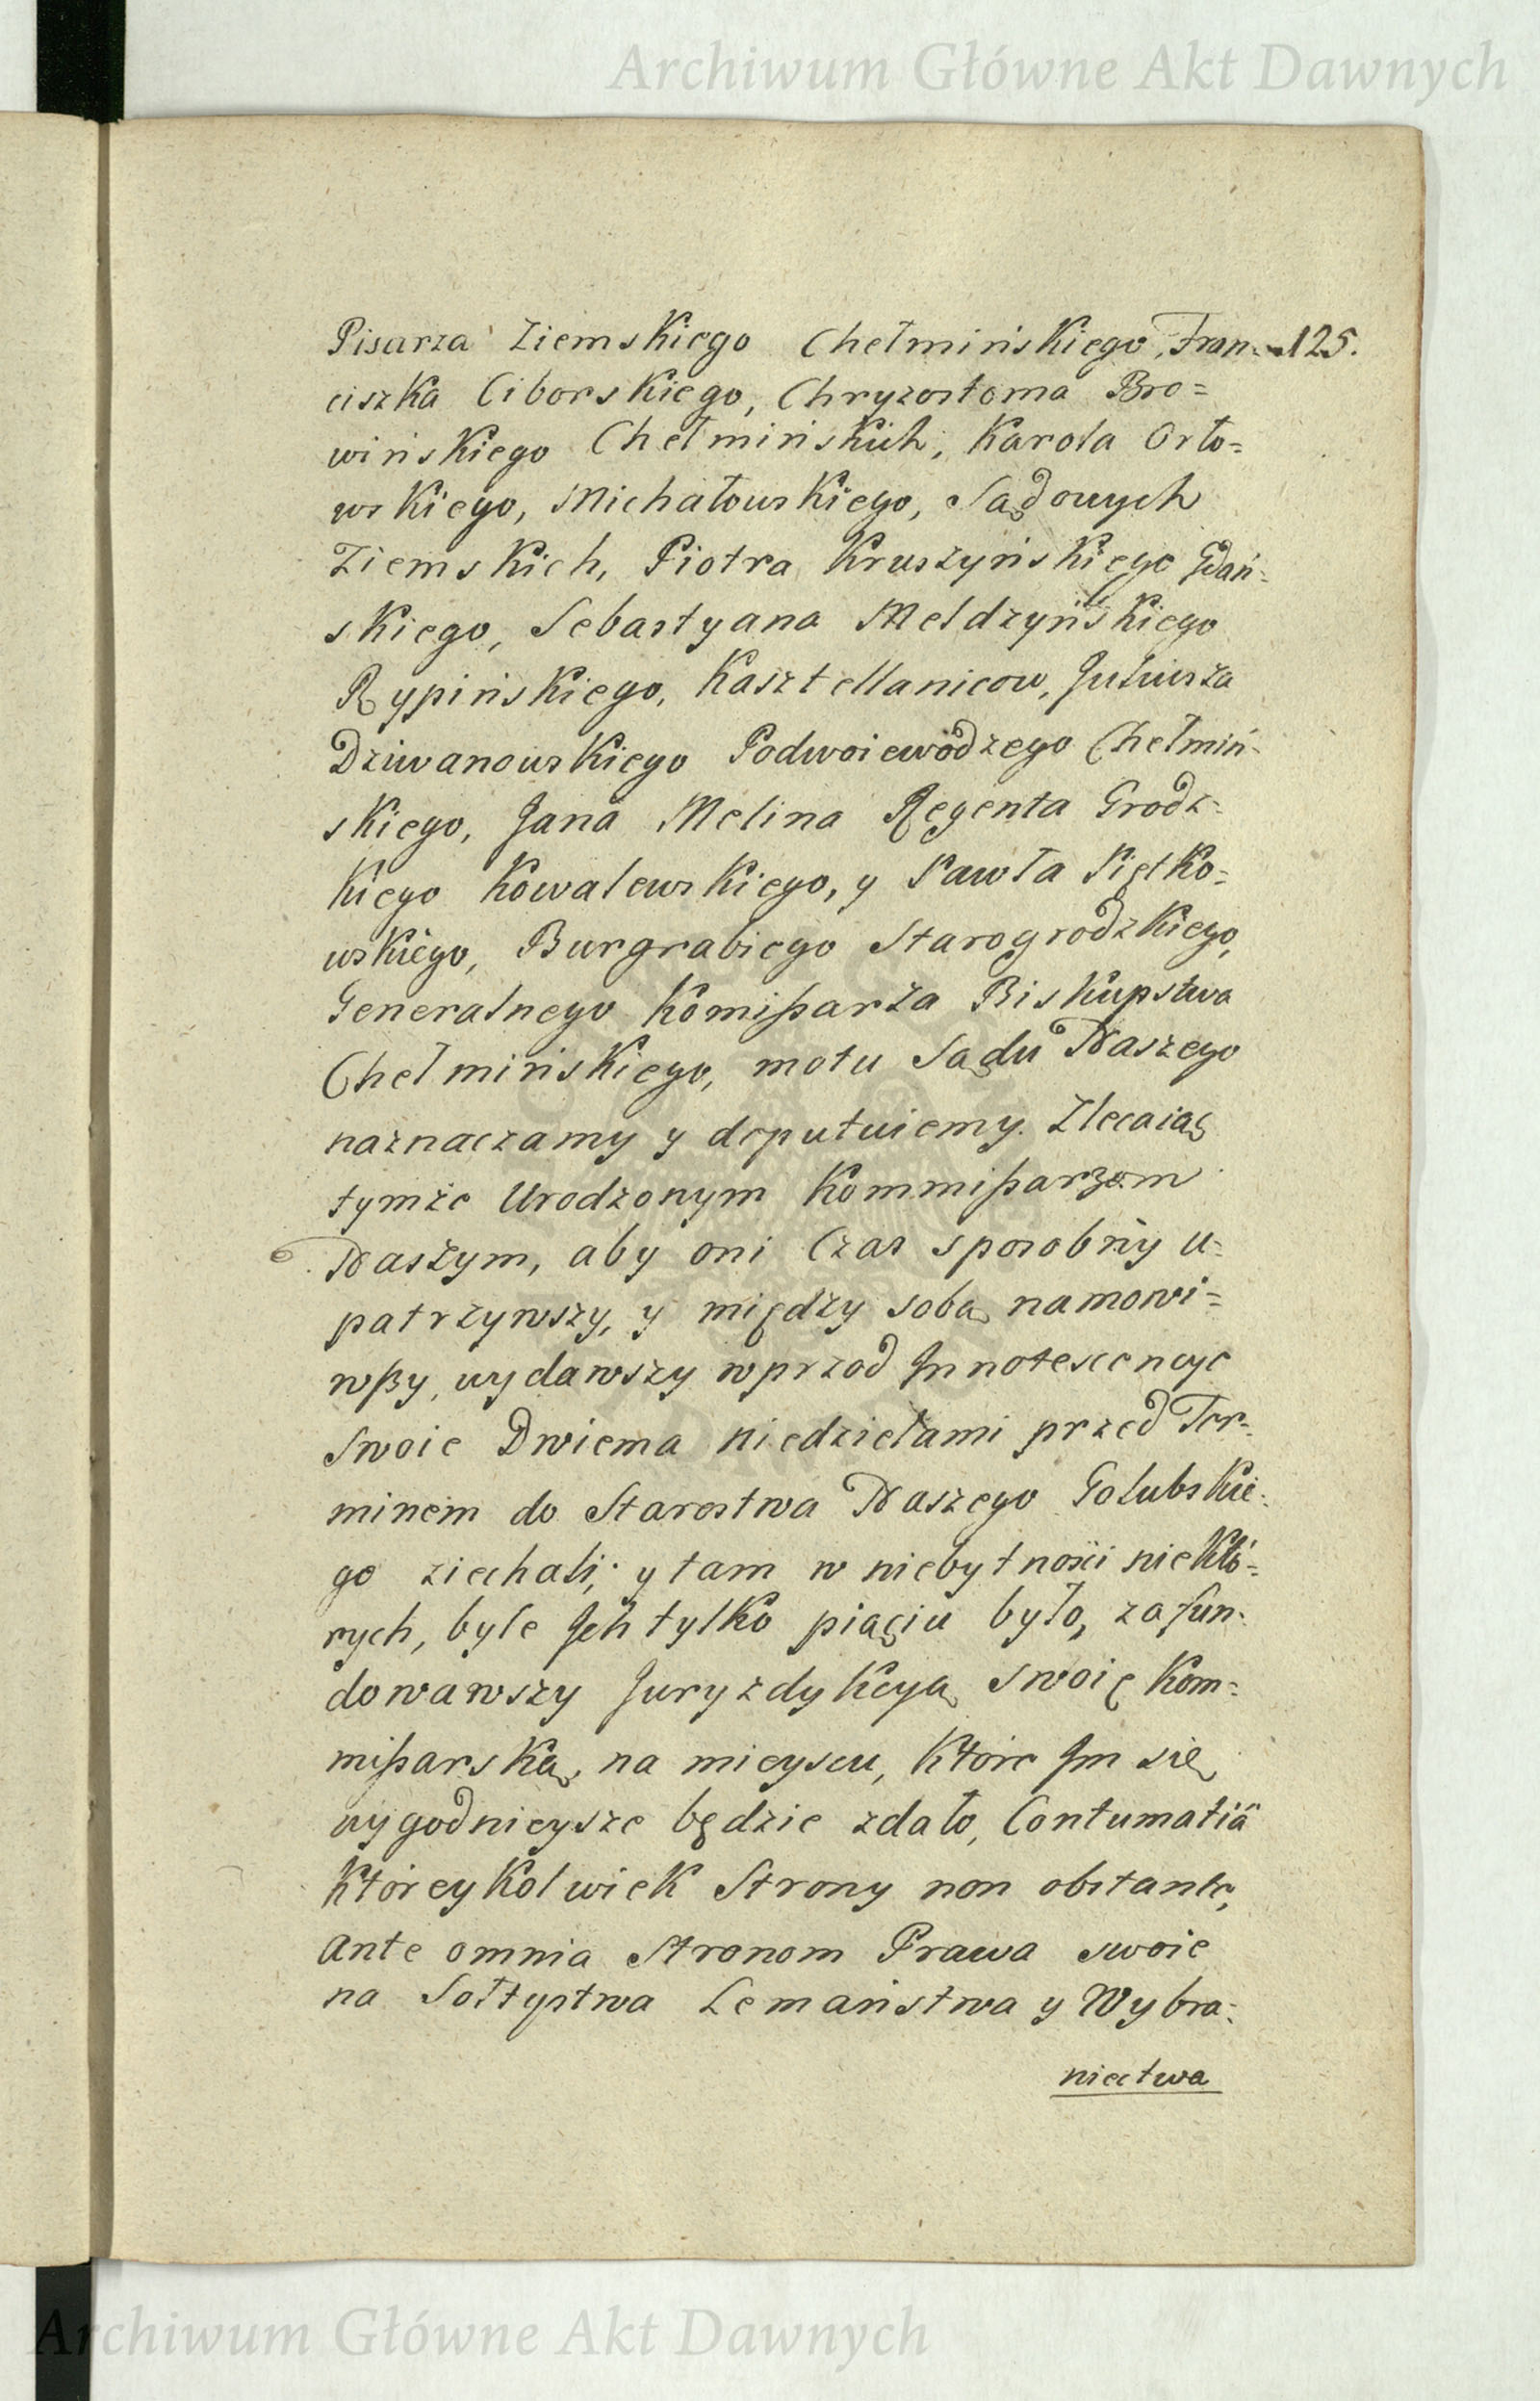 Archiwum Główne Akt Dawnych
Pisarza Ziemskiego Chełmińskiego, Fran- 125.
ciszka Ciborskiego, Chryzostoma Bro=
wińskiego Chełmińskich, Karola Orło=
wskiego, Michałowskiego, Sądowych
Ziemskich, Piotra Kruszyńskiego Gdań=
skiego, Sebastyana Meldzyńskiego
Rypińskiego, Kasztellanicow, Juliusza
Dziwanowskiego Podwoiewodzego Chełmiń-
skiego, Jana Melina Regenta Grodz=
kiego Kowalewskiego, y Pawła Piętko=
wskiego, Burgrabiego Starogrodzkiego,
Generalnego Komißarza Biskupstwa
Chełmińskiego, motu Sądu Naszego
naznaczamy y deputuiemy. Zlecaiąc
tymże Urodzonym Kommißarzom
Naszym, aby oni Czas sposobny u=
patrzywszy, y między sobą namowi=
wßy, wydawszy wprzod Innotescencye
Swoie Dwiema niedzielami przed Ter=
minem do Starostwa Naszego Golubskie=
go ziechali; y tam w niebytności niektó=
rych, byle Ich tylko piąciu było, zafun=
dowawszy Juryzdykcyą swoię Kom=
mißarską, na mieyscu, które Im się
wygodnieysze będzie zdało, Contumatiä
któreykolwiek Strony non obstante,
Ante omnia Stronom Prawa swoie
na Sołtystwa Lemaństwa y Wybra=
niectwa
Archiwum Główne Akt Dawnych